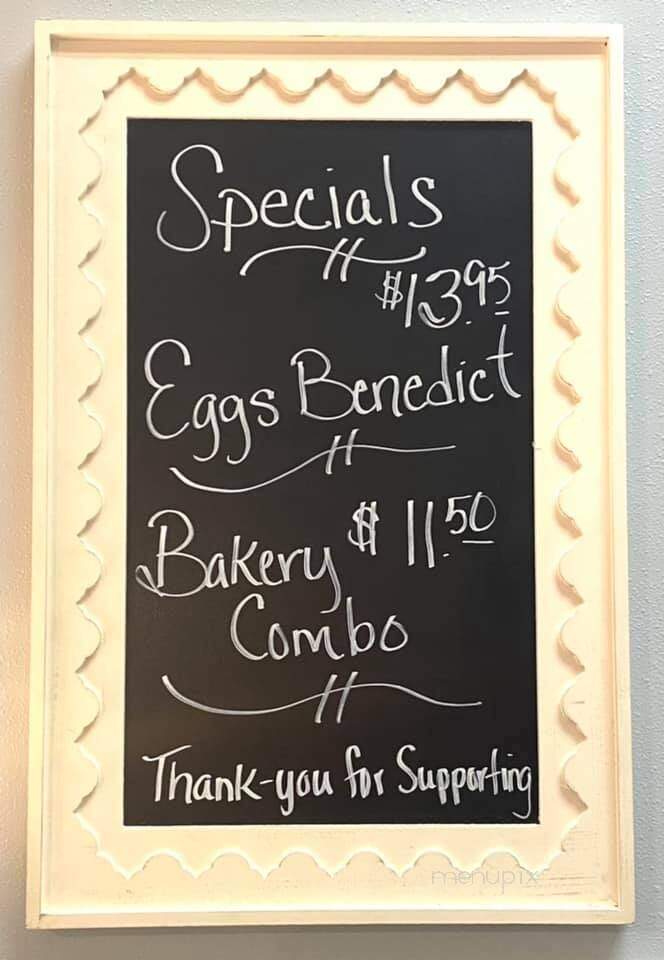 Specials
$13.95
Eggs Benedict
Bakery $11.50
Combo
Thank-you for Supporting
menupix